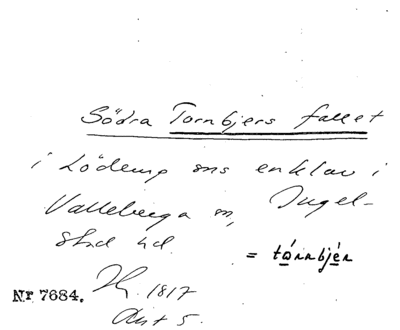 Södra Tornbjers fallet
i Löderup sns enklav i
Valleberga sn, Ingel-
stad hd.
= tórnbjér
Nr 7684. 1817
Akt 5.